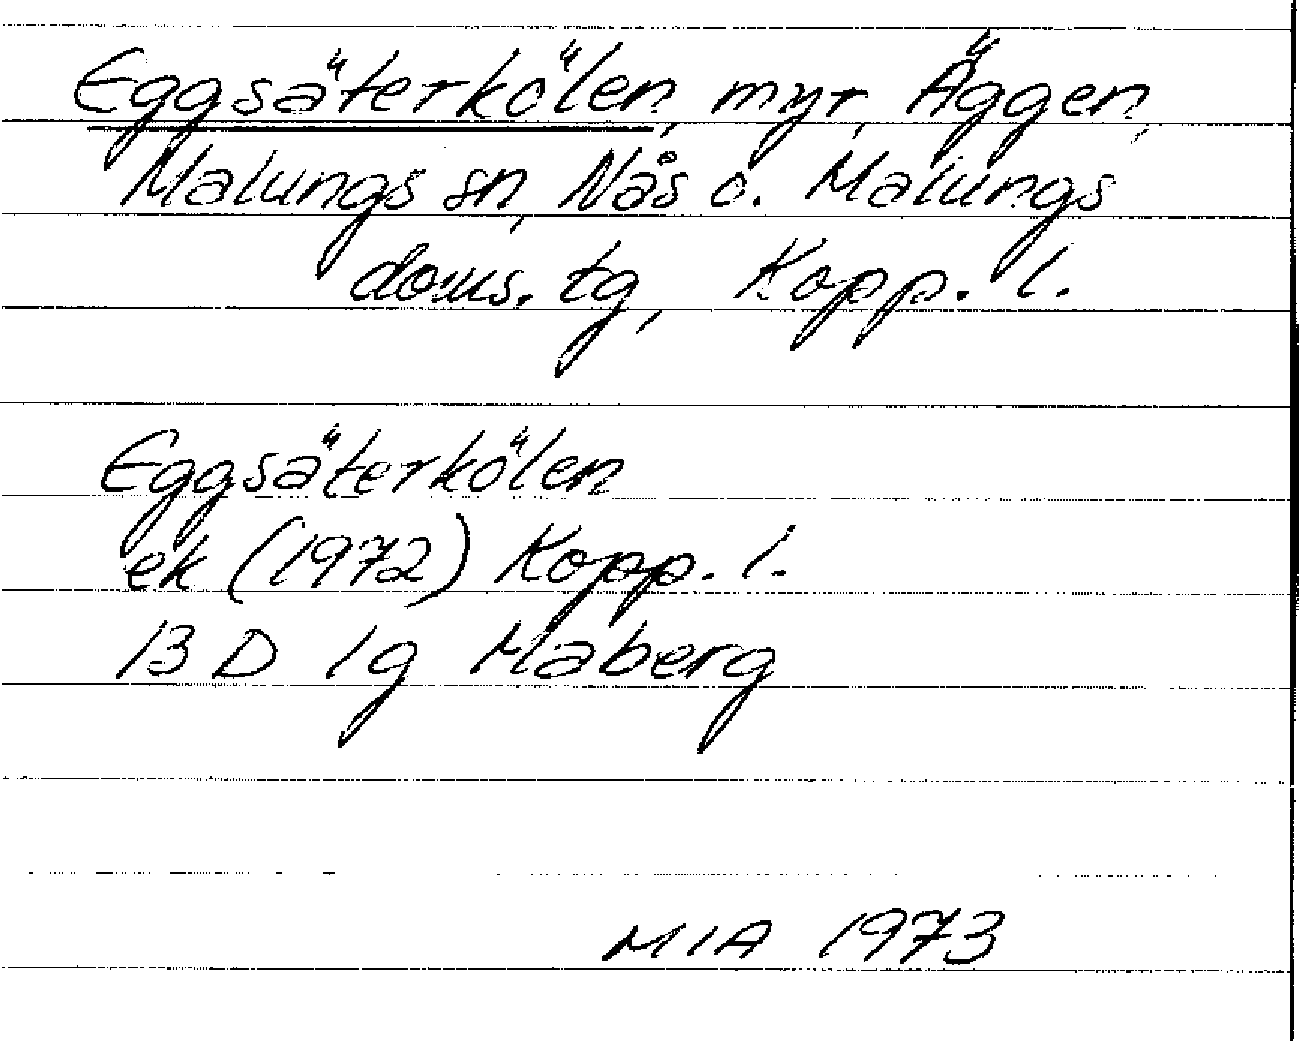 Eggsäterkölen, myr, Äggen,
Malungs sn, Nås o. Malungs
doms. tg, Kopp. l.
Eggsäterkölen
ek (1972) Kopp. l.
13 D 1g Maberg
MIA 1973